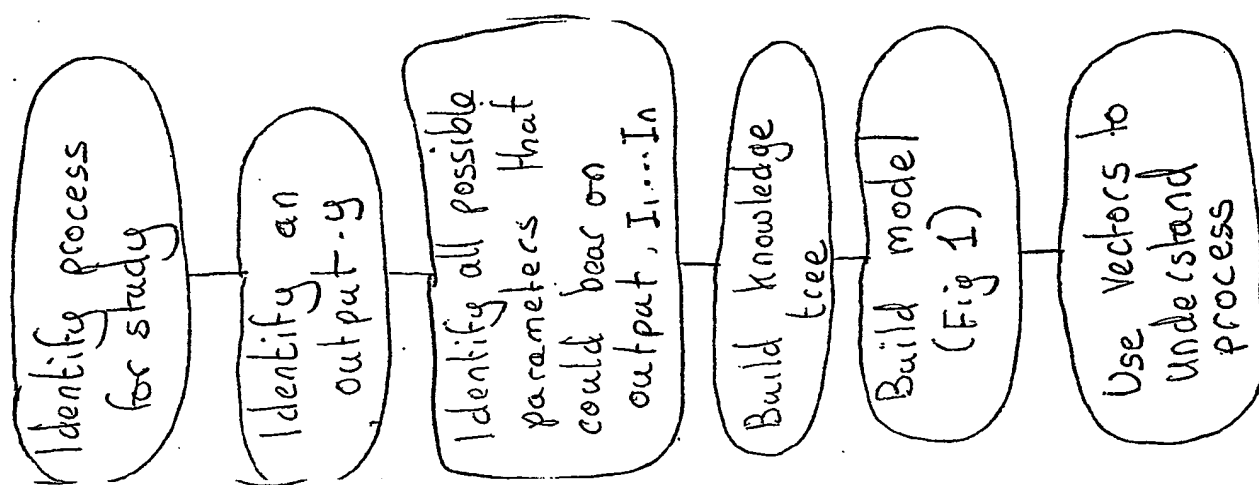 Identify process
for study
Identify an
output. y
Identify all possible
parameters that
could bear on
output, I1....In
Build knowledge
tree
Build model
(Fig 1)
Use Vectors to
Understand
process